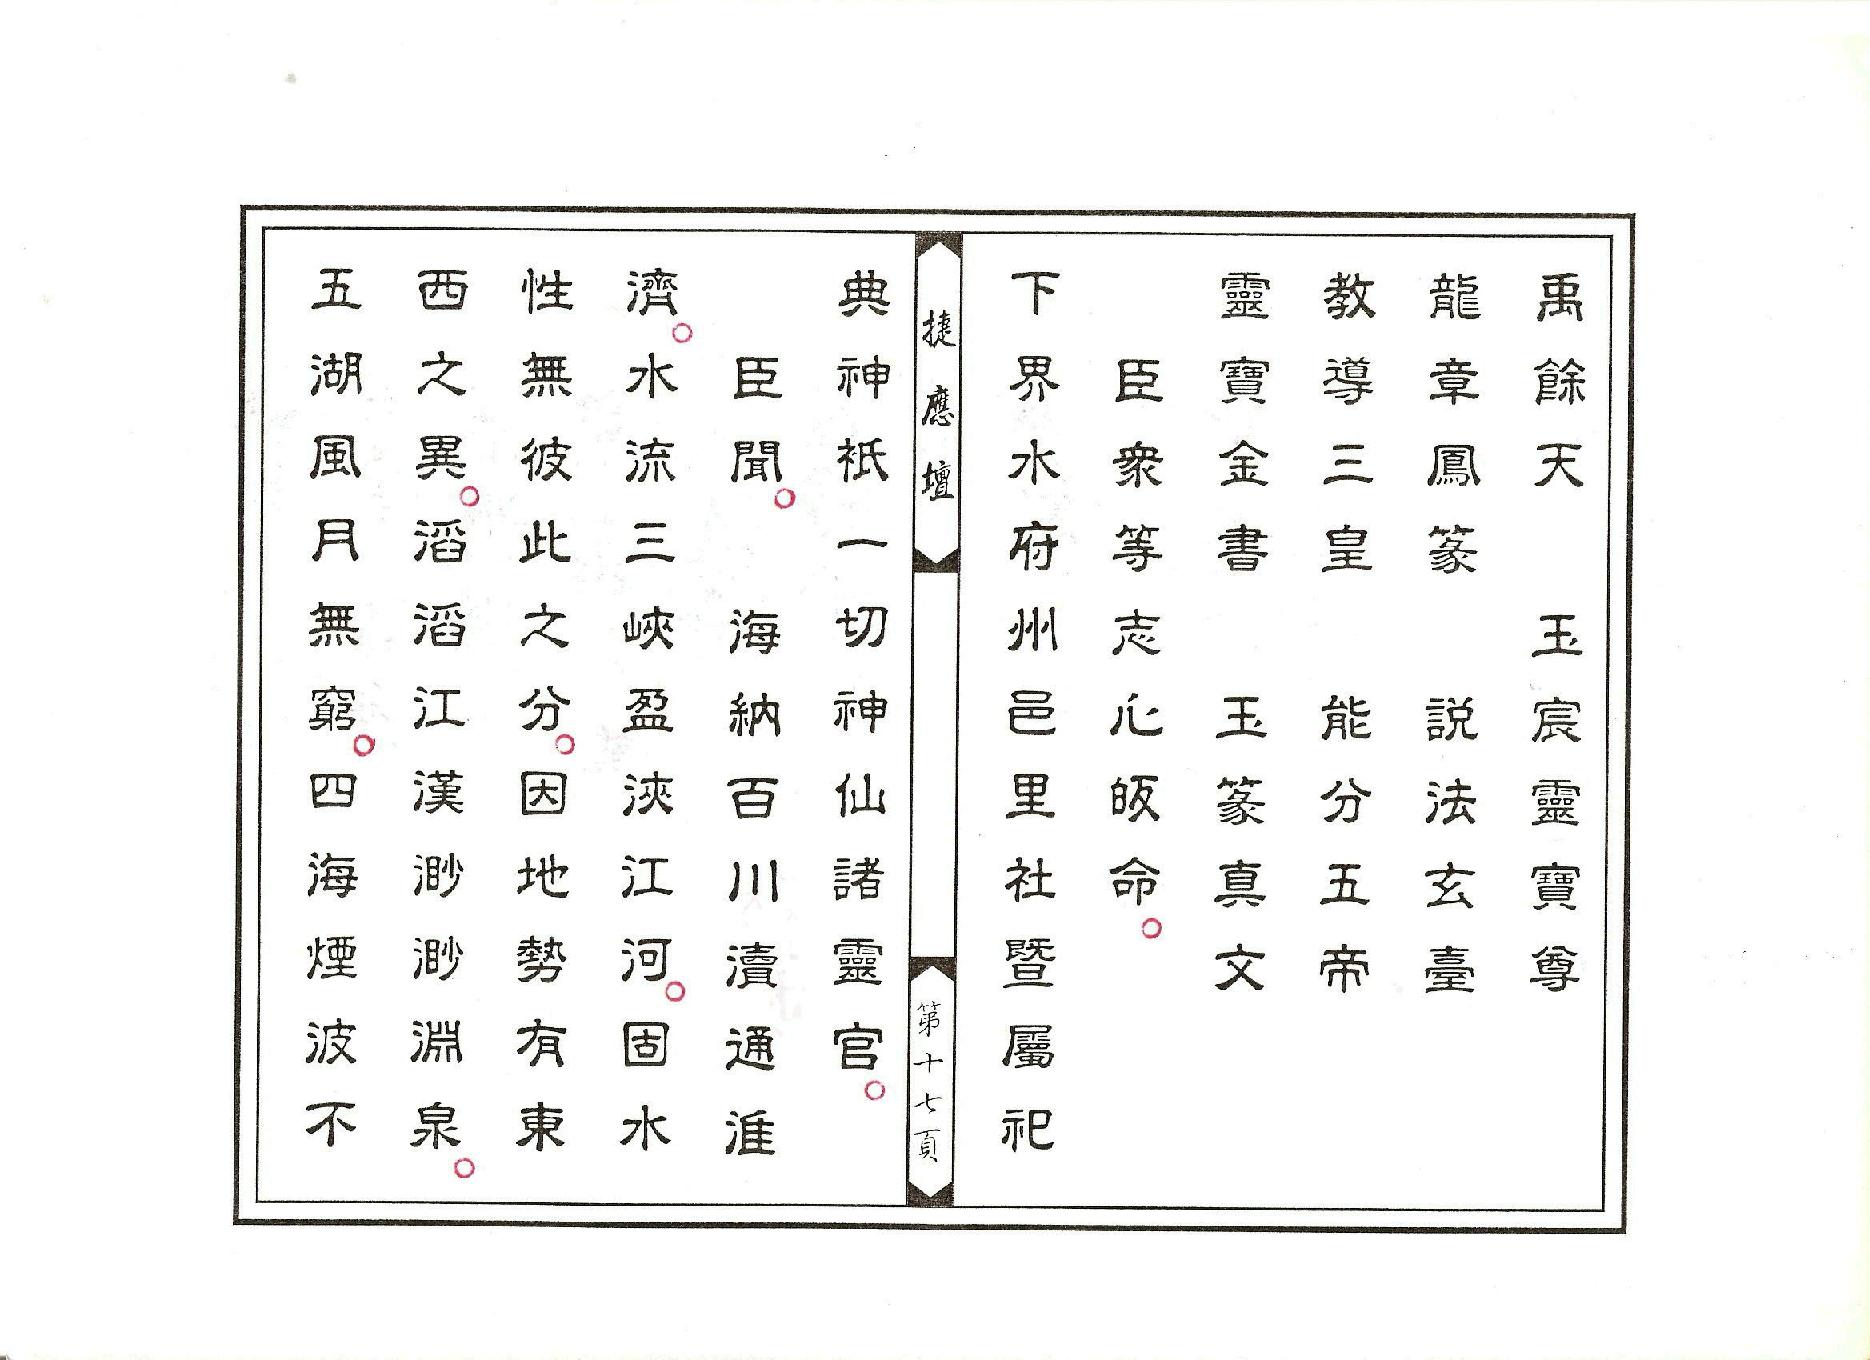 禹餘天　玉宸靈寶尊
龍章鳳篆　說法玄臺
教導三皇　能分五帝
靈寶金書　玉篆真文
臣衆等志心皈命○
下界水府州邑里社暨屬祀
捷應壇
第十七頁
典神祇一切神仙諸靈官○
臣聞○　海納百川瀆通淮
濟○水流三峽盈浹江河○固水
性無彼此之分○因地勢有東
西之異○滔滔江漢渺渺淵泉○
五湖風月無窮○四海煙波不